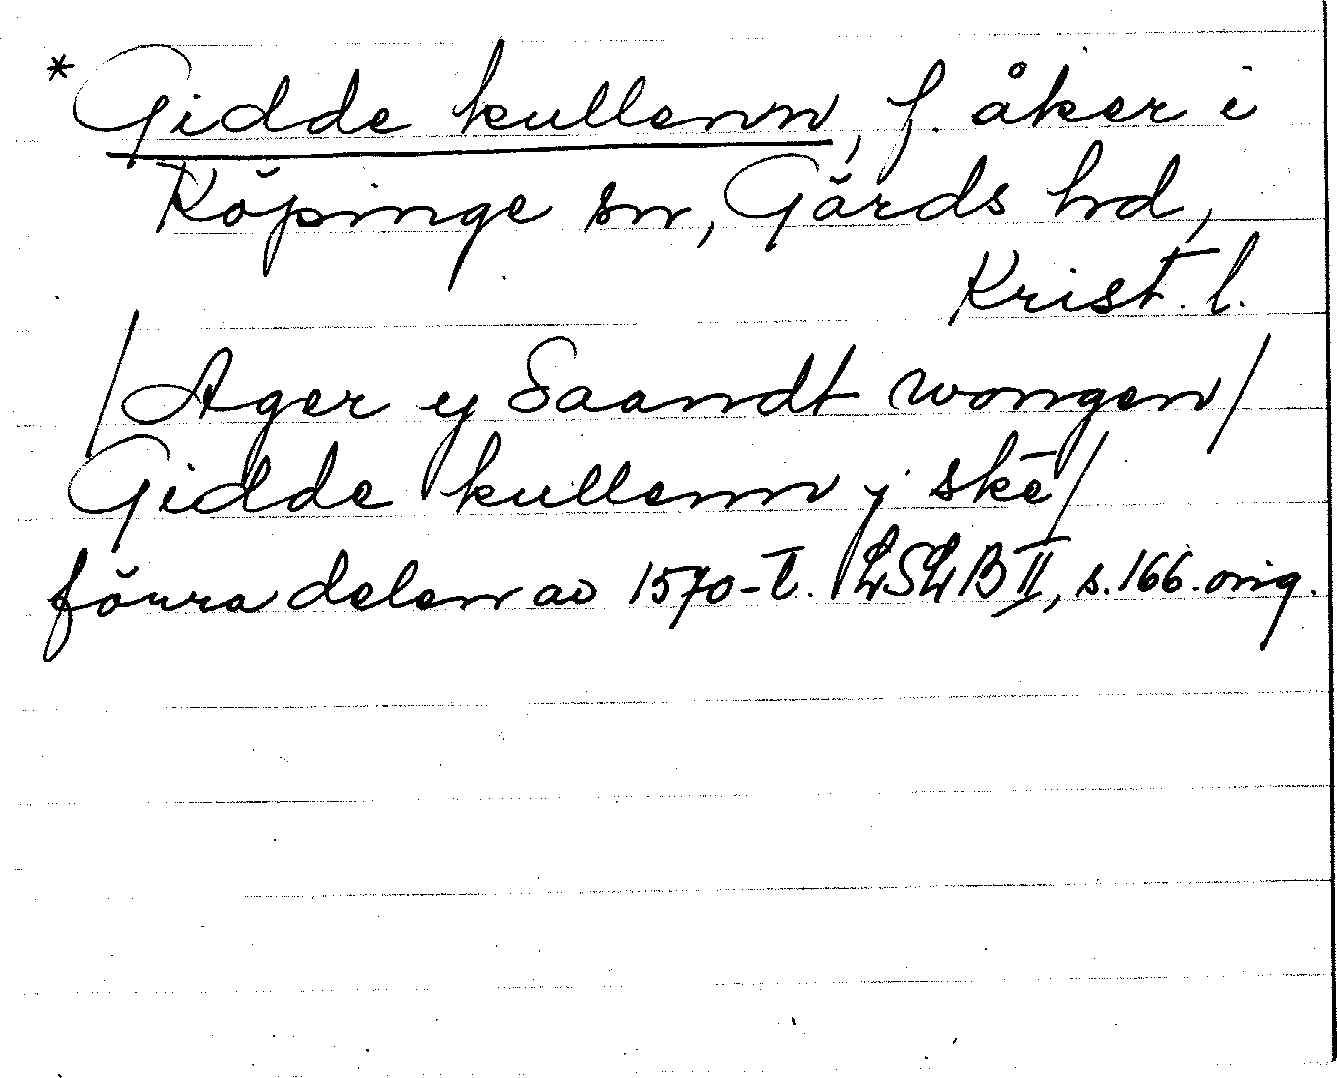 *Gidde kullenn, f. åker i
Köpinge sn, Gärds hd,
Krist. l.
/Ager y Saandt wongen/
Gidde kullenn y skē/
förra delen av 1570-t. LSLB II, s. 166. orig.